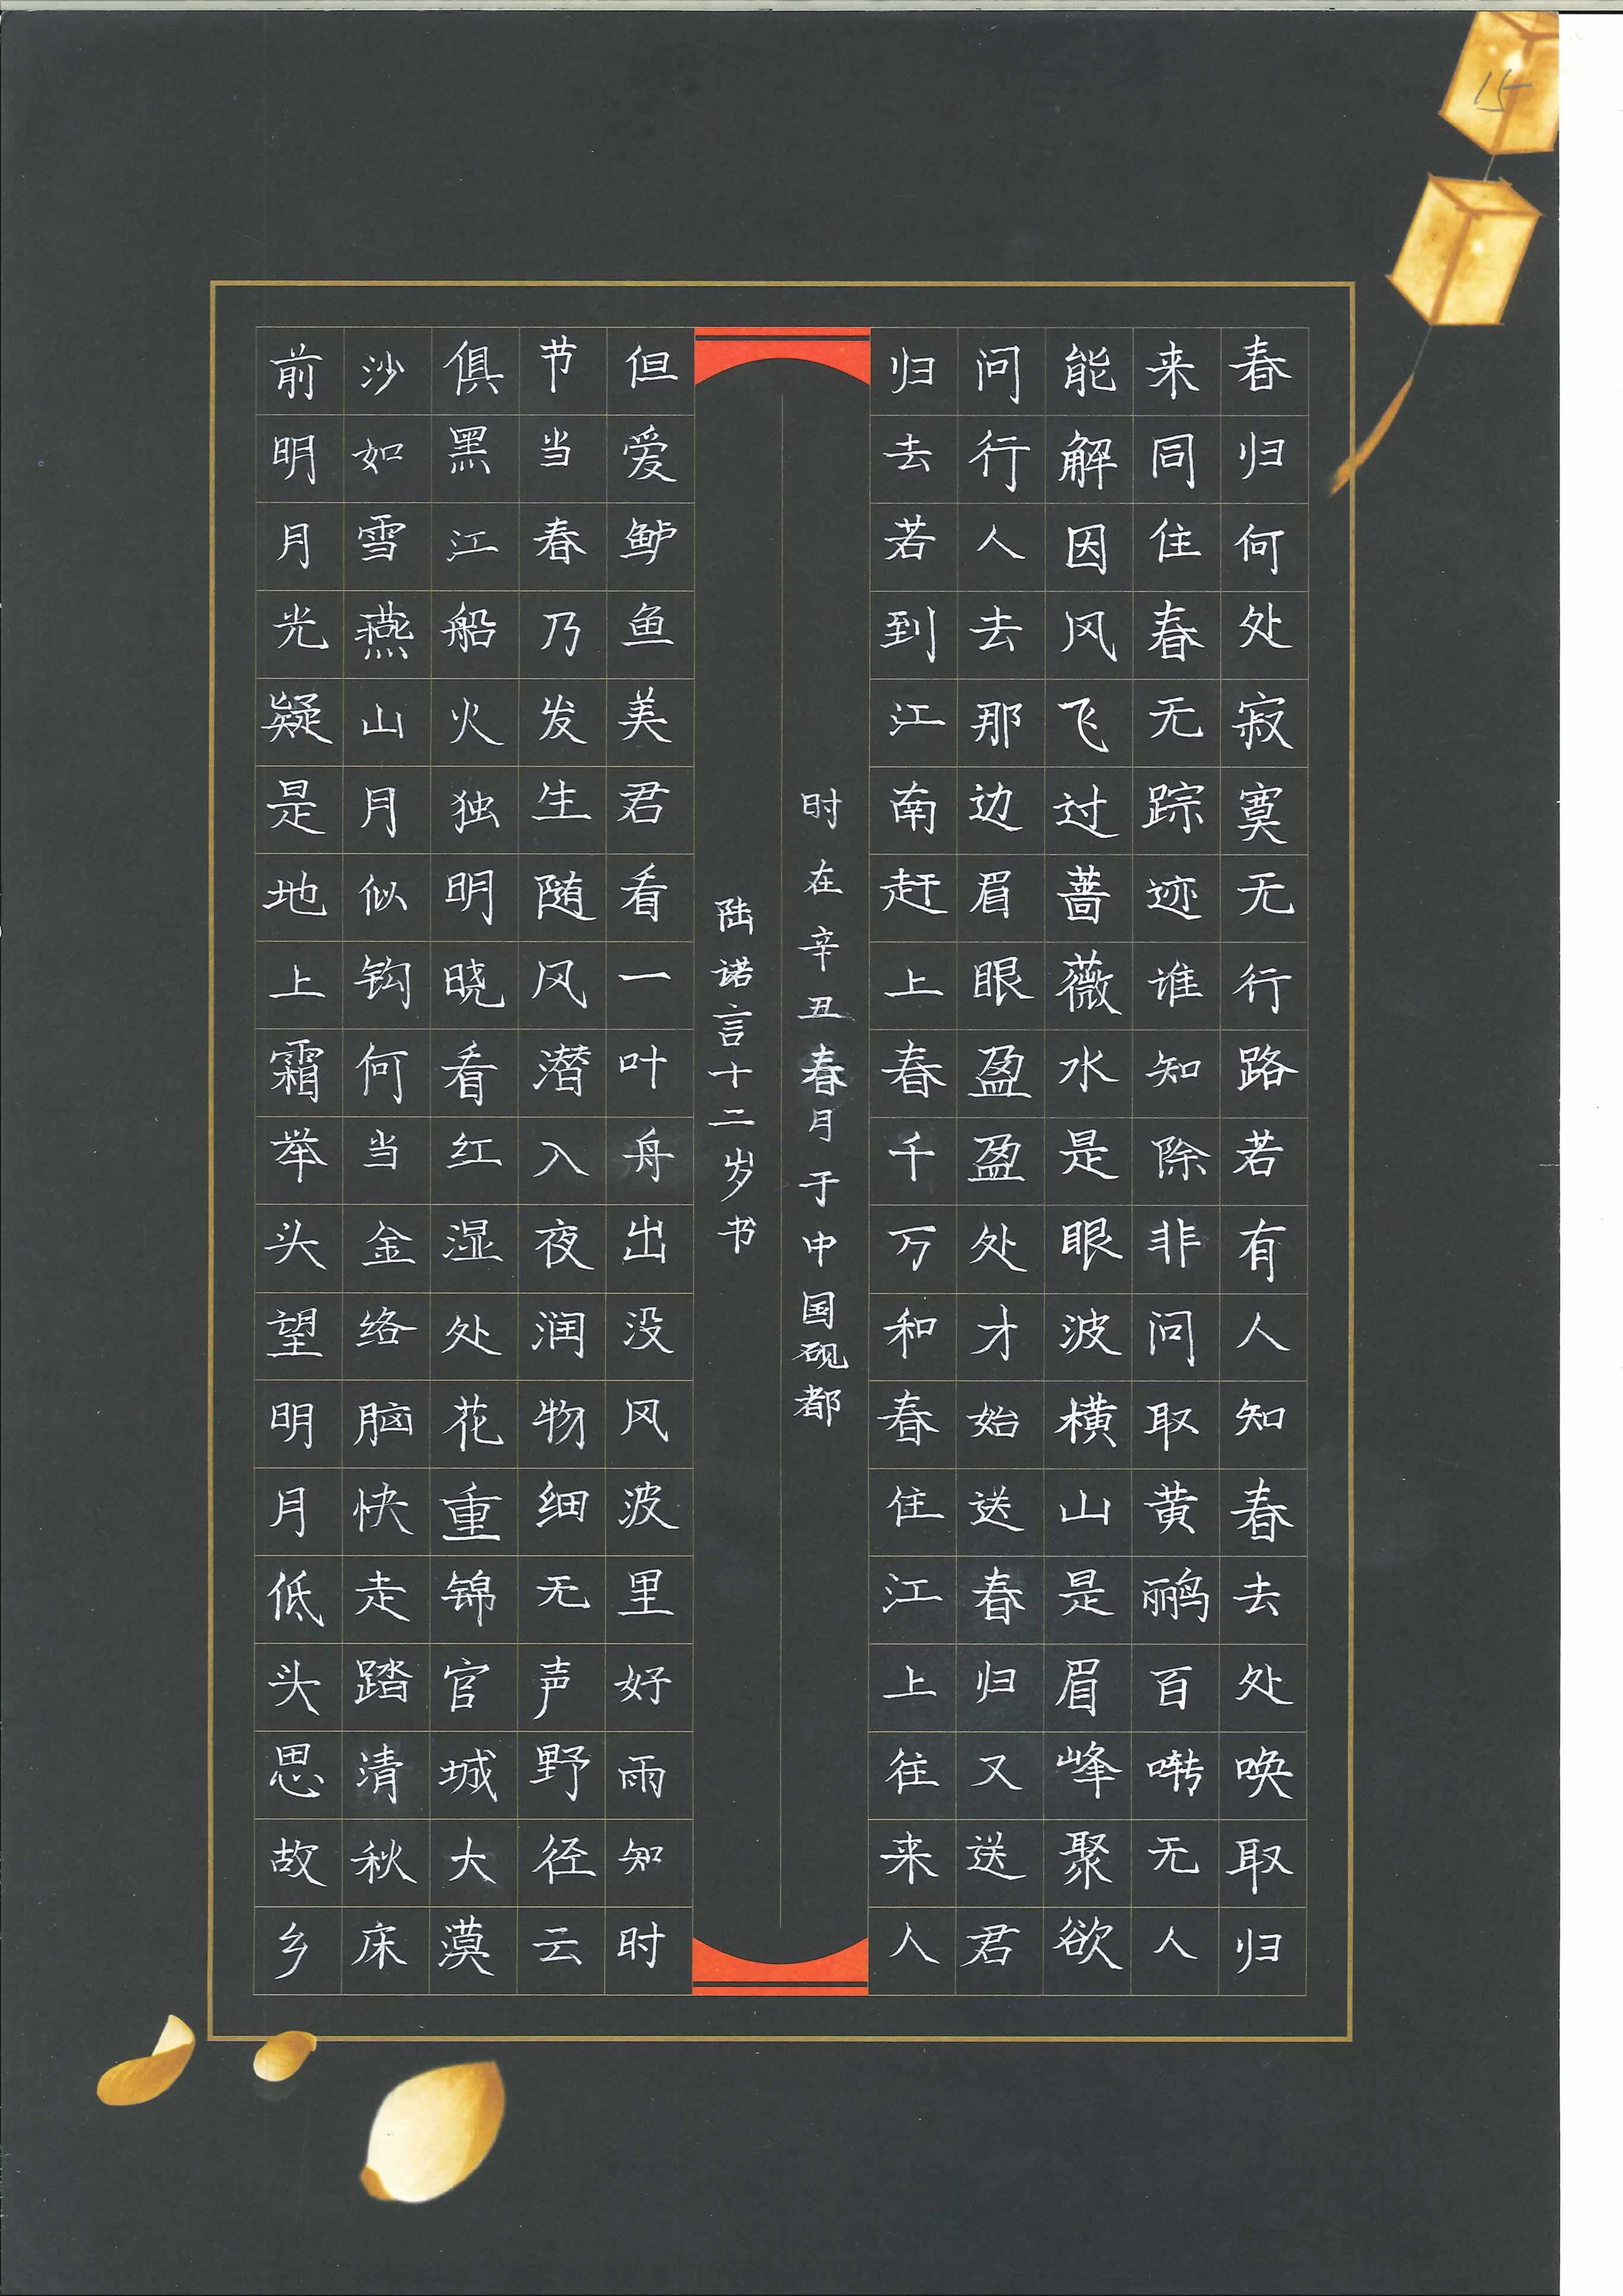 15
春归何处寂寞无行路若有人知春去处唤取归
来同住春无踪迹谁知除非问取黄鹂百啭无人
能解因风飞过蔷薇水是眼波横山是眉峰聚欲
问行人去那边眉眼盈盈处才始送春归又送君
归去若到江南赶上春千万和春住江上往来人
时在辛丑春月于中国砚都
陆诺言十二岁书
但爱鲈鱼美君看一叶舟出没风波里好雨知时
节当春乃发生随风潜入夜润物细无声野径云
俱黑江船火独明晓看红湿处花重锦官城大漠
沙如雪燕山月似钩何当金络脑快走踏清秋床
前明月光疑是地上霜举头望明月低头思故乡